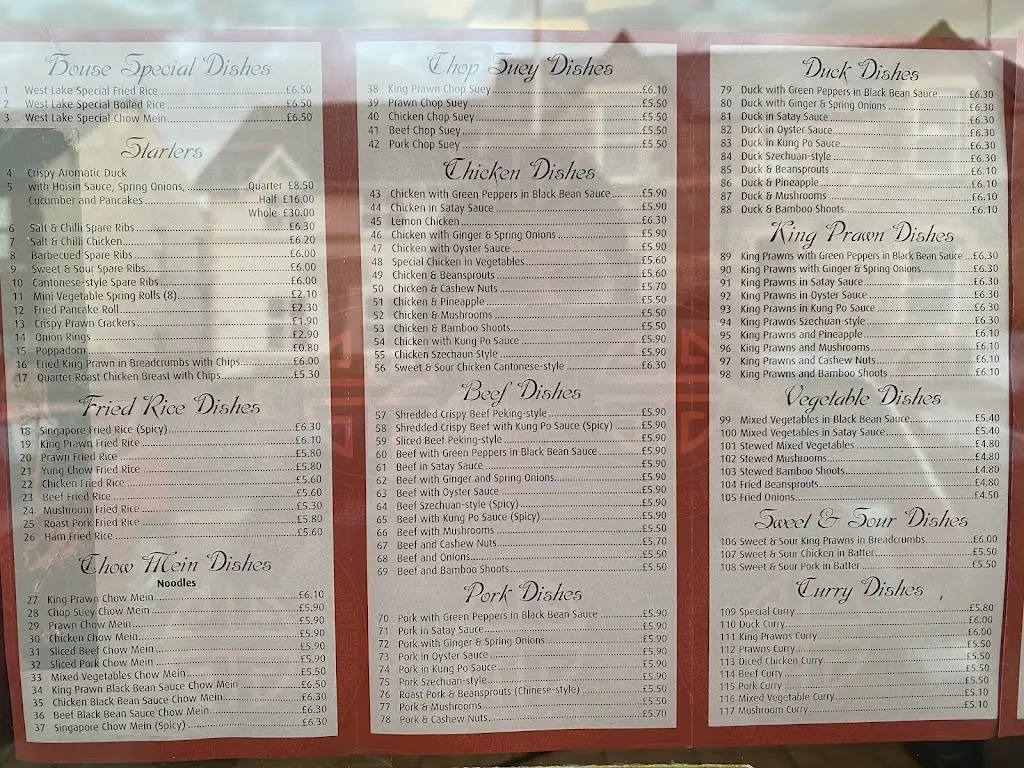 House Special Dishes
1 West Lake Special Fried Rice £6.50
2 West Lake Special Boiled Rice £6.50
3 West Lake Special Chow Mein £6.50
Starters
4 Crispy Aromatic Duck
5 with Hoisin Sauce, Spring Onions, Quarter £8.50
Cucumber and Pancakes Half £16.00
Whole £30.00
6 Salt & Chilli Spare Ribs £6.30
7 Salt & Chilli Chicken £6.20
8 Barbecued Spare Ribs £6.00
9 Sweet & Sour Spare Ribs £6.00
10 Cantonese-style Spare Ribs £6.00
11 Mini Vegetable Spring Rolls (8) £2.10
12 Fried Pancake Roll £2.30
13 Crispy Prawn Crackers £1.90
14 Onion Rings £2.90
15 Poppadom £0.80
16 Fried King Prawn in Breadcrumbs with Chips £6.00
17 Quarter Roast Chicken Breast with Chips £5.30
Fried Rice Dishes
18 Singapore Fried Rice (Spicy) £6.30
19 King Prawn Fried Rice £6.10
20 Prawn Fried Rice £5.80
21 Yung Chow Fried Rice £5.80
22 Chicken Fried Rice £5.60
23 Beef Fried Rice £5.60
24 Mushroom Fried Rice £5.30
25 Roast Pork Fried Rice £5.80
26 Ham Fried Rice £5.60
Chow Mein Dishes
Noodles
27 King Prawn Chow Mein £6.10
28 Chop Suey Chow Mein £5.90
29 Prawn Chow Mein £5.90
30 Chicken Chow Mein £5.90
31 Sliced Beef Chow Mein £5.90
32 Sliced Pork Chow Mein £5.90
33 Mixed Vegetables Chow Mein £5.50
34 King Prawn Black Bean Sauce Chow Mein £6.50
35 Chicken Black Bean Sauce Chow Mein £6.30
36 Beef Black Bean Sauce Chow Mein £6.30
37 Singapore Chow Mein (Spicy) £6.30
Chop Suey Dishes
38 King Prawn Chop Suey £6.10
39 Prawn Chop Suey £5.50
40 Chicken Chop Suey £5.50
41 Beef Chop Suey £5.50
42 Pork Chop Suey £5.50
Chicken Dishes
43 Chicken with Green Peppers in Black Bean Sauce £5.90
44 Chicken in Satay Sauce £5.90
45 Lemon Chicken £6.30
46 Chicken with Ginger & Spring Onions £5.90
47 Chicken with Oyster Sauce £5.90
48 Special Chicken in Vegetables £5.60
49 Chicken & Beansprouts £5.60
50 Chicken & Cashew Nuts £5.70
51 Chicken & Pineapple £5.50
52 Chicken & Mushrooms £5.50
53 Chicken & Bamboo Shoots £5.50
54 Chicken with Kung Po Sauce £5.90
55 Chicken Szechaun Style £5.90
56 Sweet & Sour Chicken Cantonese-style £6.30
Beef Dishes
57 Shredded Crispy Beef Peking-style £5.90
58 Shredded Crispy Beef with Kung Po Sauce (Spicy) £5.90
59 Sliced Beef Peking-style £5.90
60 Beef with Green Peppers in Black Bean Sauce £5.90
61 Beef in Satay Sauce £5.90
62 Beef with Ginger and Spring Onions £5.90
63 Beef with Oyster Sauce £5.90
64 Beef Szechuan-style (Spicy) £5.90
65 Beef with Kung Po Sauce (Spicy) £5.90
66 Beef with Mushrooms £5.50
67 Beef and Cashew Nuts £5.70
68 Beef and Onions £5.50
69 Beef and Bamboo Shoots £5.50
Pork Dishes
70 Pork with Green Peppers in Black Bean Sauce £5.90
71 Pork in Satay Sauce £5.90
72 Pork with Ginger & Spring Onions £5.90
73 Pork in Oyster Sauce £5.90
74 Pork in Kung Po Sauce £5.90
75 Pork Szechuan-style £5.90
76 Roast Pork & Beansprouts (Chinese-style) £5.50
77 Pork & Mushrooms £5.50
78 Pork & Cashew Nuts £5.70
Duck Dishes
79 Duck with Green Peppers in Black Bean Sauce £6.30
80 Duck with Ginger & Spring Onions £6.30
81 Duck in Satay Sauce £6.30
82 Duck in Oyster Sauce £6.30
83 Duck in Kung Po Sauce £6.30
84 Duck Szechuan-style £6.30
85 Duck & Beansprouts £6.10
86 Duck & Pineapple £6.10
87 Duck & Mushrooms £6.10
88 Duck & Bamboo Shoots £6.10
King Prawn Dishes
89 King Prawns with Green Peppers in Black Bean Sauce £6.30
90 King Prawns with Ginger & Spring Onions £6.30
91 King Prawns in Satay Sauce £6.30
92 King Prawns in Oyster Sauce £6.30
93 King Prawns in Kung Po Sauce £6.30
94 King Prawns Szechuan-style £6.30
95 King Prawns and Pineapple £6.10
96 King Prawns and Mushrooms £6.10
97 King Prawns and Cashew Nuts £6.10
98 King Prawns and Bamboo Shoots £6.10
Vegetable Dishes
99 Mixed Vegetables in Black Bean Sauce £5.40
100 Mixed Vegetables in Satay Sauce £5.40
101 Stewed Mixed Vegetables £4.80
102 Stewed Mushrooms £4.80
103 Stewed Bamboo Shoots £4.80
104 Fried Beansprouts £4.80
105 Fried Onions £4.50
Sweet & Sour Dishes
106 Sweet & Sour King Prawns in Breadcrumbs £6.00
107 Sweet & Sour Chicken in Batter £5.50
108 Sweet & Sour Pork in Batter £5.50
Curry Dishes
109 Special Curry £5.80
110 Duck Curry £6.00
111 King Prawns Curry £6.00
112 Prawns Curry £5.50
113 Diced Chicken Curry £5.50
114 Beef Curry £5.50
115 Pork Curry £5.50
116 Mixed Vegetable Curry £5.10
117 Mushroom Curry £5.10